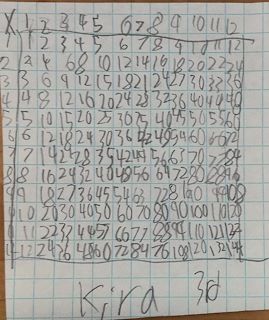 X 1 2 3 4 5 6 7 8 9 10 11 12
1 2 3 4 5 6 7 8 9 10 11 12
2 2 4 6 8 10 12 14 16 18 20 22 24
3 3 6 9 12 15 18 21 24 27 30 33 36
4 4 8 12 16 20 24 28 32 36 40
5 5 10 15 20 25 30 40 45 50 55 60
6 6 12 18 24 30 36 42 48 54 60 66 72
7 7 14 28 35 42 49 56 63 70
8 8 16 24 32 40 48 56 64 72
9 9 18 27 36 45 54 63 72
10 20 30 40 50 60 70 80 90 100 110
11 22 33 44 66 77
12 24 36 48 60 72 84
Kira 3d